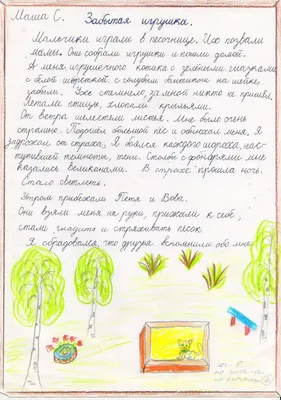 Маша С.
Забытая игрушка.
Мальчики играли в песочнице. Их позвали
мамы. Они собрали игрушки и пошли домой.
А меня игрушечного котика с зелёными глазками
с белой шёрсткой с голубым бантиком на шейке,
забыли. Уже стемнело, за мной никто не пришёл.
Летали птицы, хлопали крыльями.
От ветра шелестели листья. Мне было очень
страшно. Подошёл большой пёс и обнюхал меня. Я
задрожал от страха, Я боялся каждого шороха, нас-
тупившей темноты, тени. Столбы с фонарями мне
казались великанами. В страхе прошла ночь.
Стало светлеть.
Утром прибежали Петя и Вова.
Они взяли меня на руки, прижали к себе,
стали гладить и стряхивать песок.
Я обрадовался, что друзья вспомнили обо мне.